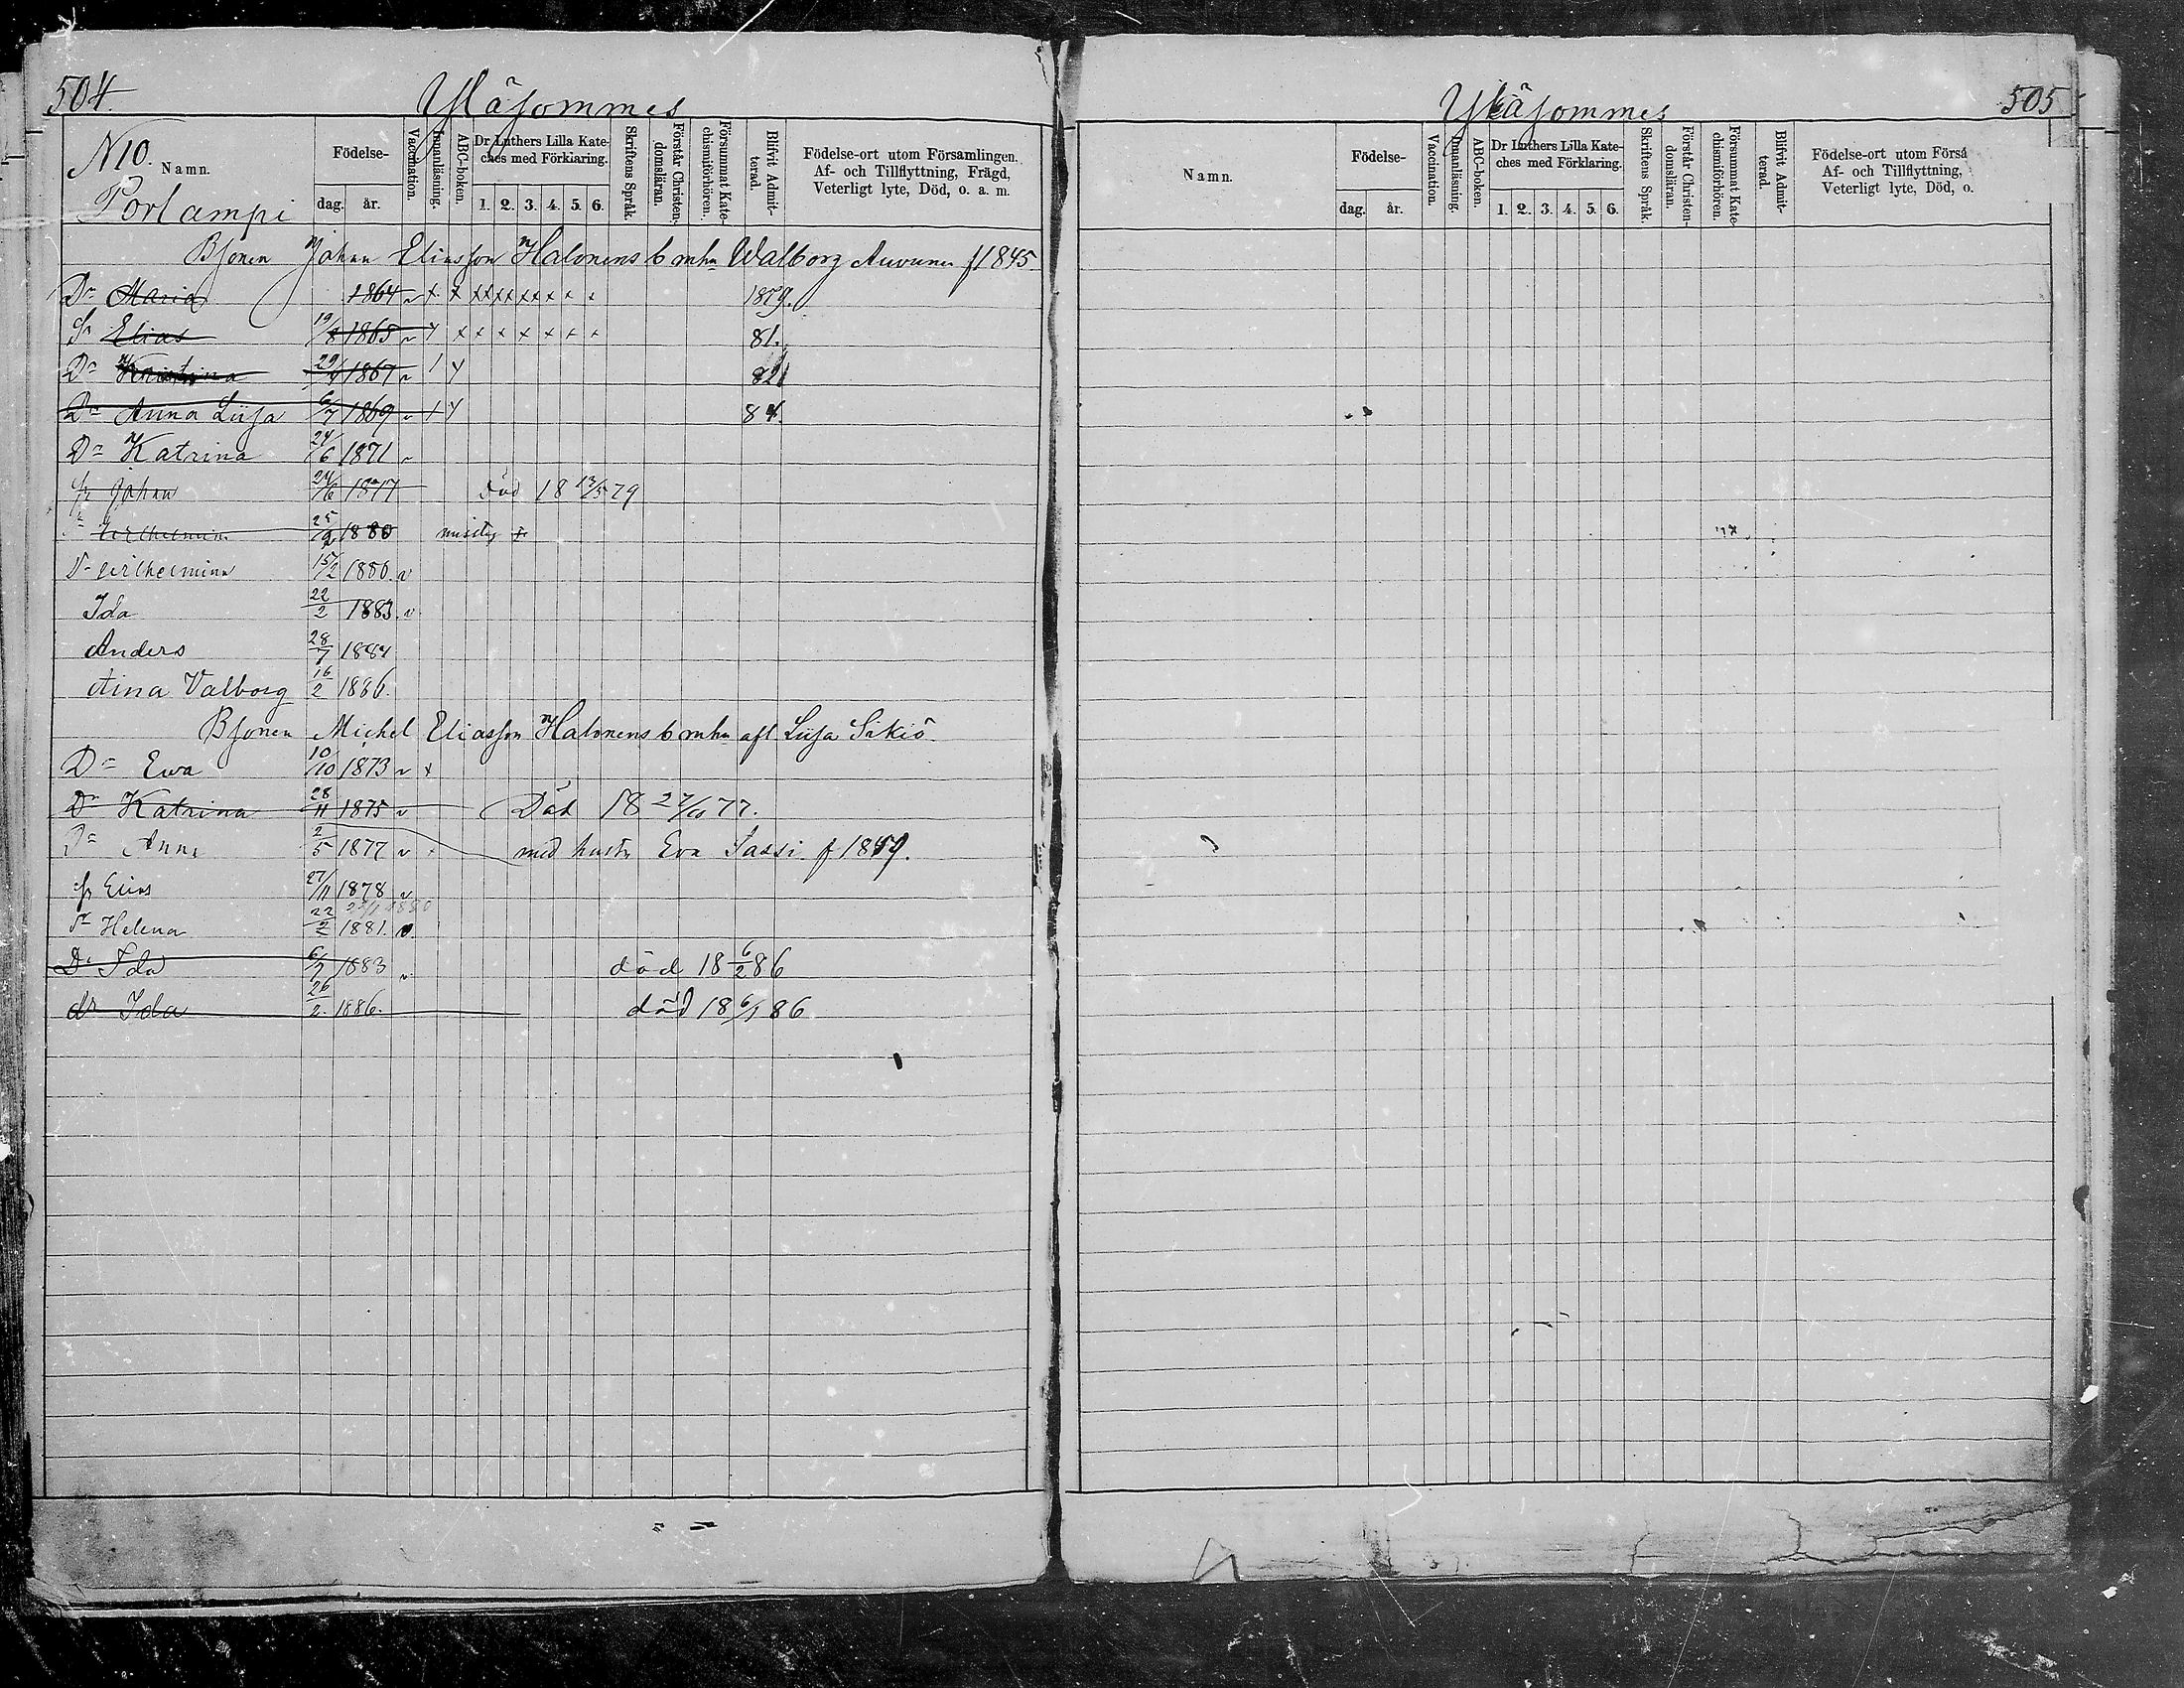 504.
Yläsommes
N10.
Namn.
Porlampi
Födelse-
dag. år.
Vaccination.
Innanläsning.
ABC-boken.
Dr Luthers Lilla Kate-
ches med Förklaring.
1. 2. 3. 4. 5. 6.
Skriftens Språk.
Förstår Christen-
domsläran.
Försummat Kate-
chismiförhören.
Blifvit Admit-
terad.
Födelse-ort utom Församlingen.
Af- och Tillflyttning, Frägd,
Veterligt lyte, Död, o. a. m.
Bsonen Johan Eliasson Halonens b mhu Walborg Auvinen f 1845.
Dr Maria 1864 v x x xx xx xx x x x 1879.
Sr Elias 19/8 1865 v y x x x x x x x 81.
Dr Kristina 29/4 1867 v 1 y 82
Dr Anna Liisa 6/7 1869 v 1 y 84.
Dr Katrina 24/6 1871 v
Sr Johan 24/6 1877 död 18 13/5 79
Wilhelmina 25/2 1880
Dr Wilhelmina 15/2 1880. v
Ida 22/2 1883. v
Anders 28/7 1884
Aina Valborg 16/2 1886.
Bsonen Michel Eliasson Halonens b mhu afl Liisa Sikiö
Dr Ewa 10/10 1873 v x
Dr Katrina 28/11 1875 v Död 18 27/10 77.
Dr Anna 2/5 1877 v med hustr Eva Sassi f 1859.
Sr Elias 27/11 1878 v
Dr Helena 22/2 1881. v.
Dr Ida 6/7 1883 v död 18 6/2 86
dr Ida 26/2. 1886. död 18 6/5 86
Yläsommes
505
Namn.
Födelse-
dag. år.
Vaccination.
Innanläsning.
ABC-boken.
Dr Luthers Lilla Kate-
ches med Förklaring.
1. 2. 3. 4. 5. 6.
Skriftens Språk.
Förstår Christen-
domsläran.
Försummat Kate-
chismiförhören.
Blifvit Admit-
terad.
Födelse-ort utom Förså
Af- och Tillflyttning,
Veterligt lyte, Död, o.